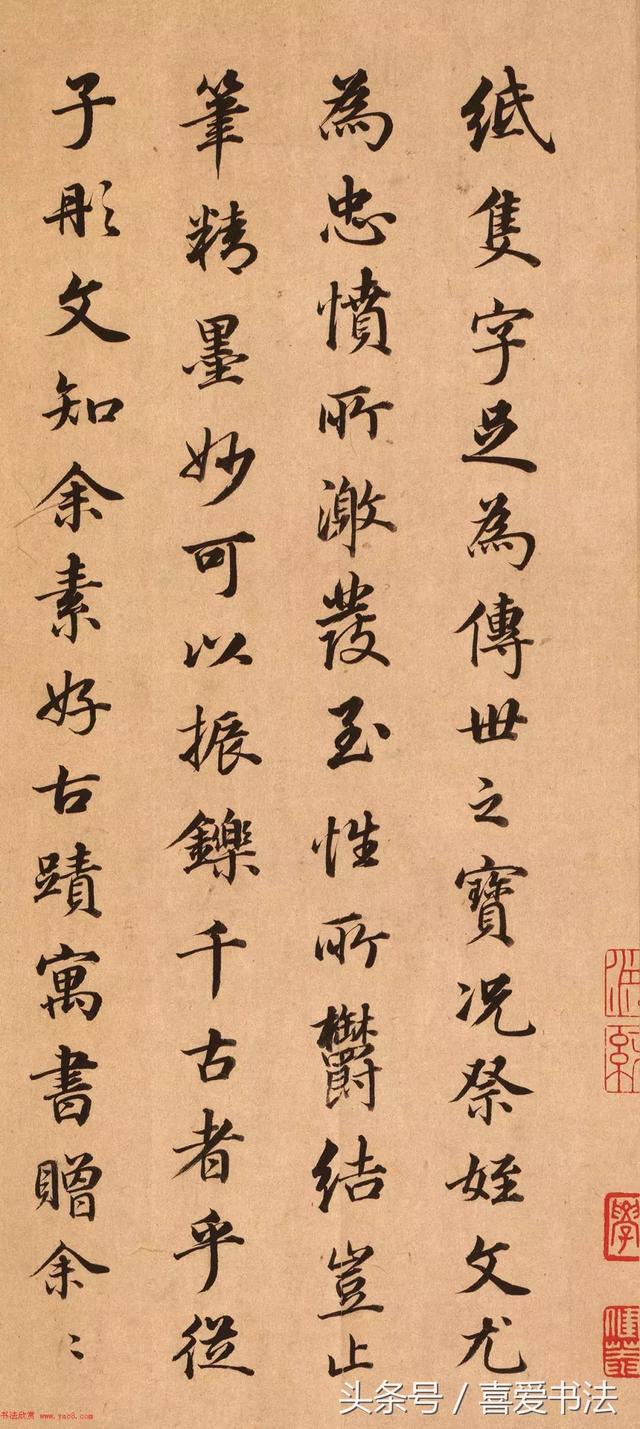 紙隻字足為傳世之寶况祭姪文尤
為忠憤所激發至性所鬱結豈止
筆精墨妙可以振鑠千古者乎從
子彤文知余素好古蹟寓書贈余〻
头条号／喜爱书法
书法欣赏 www.yac8.com